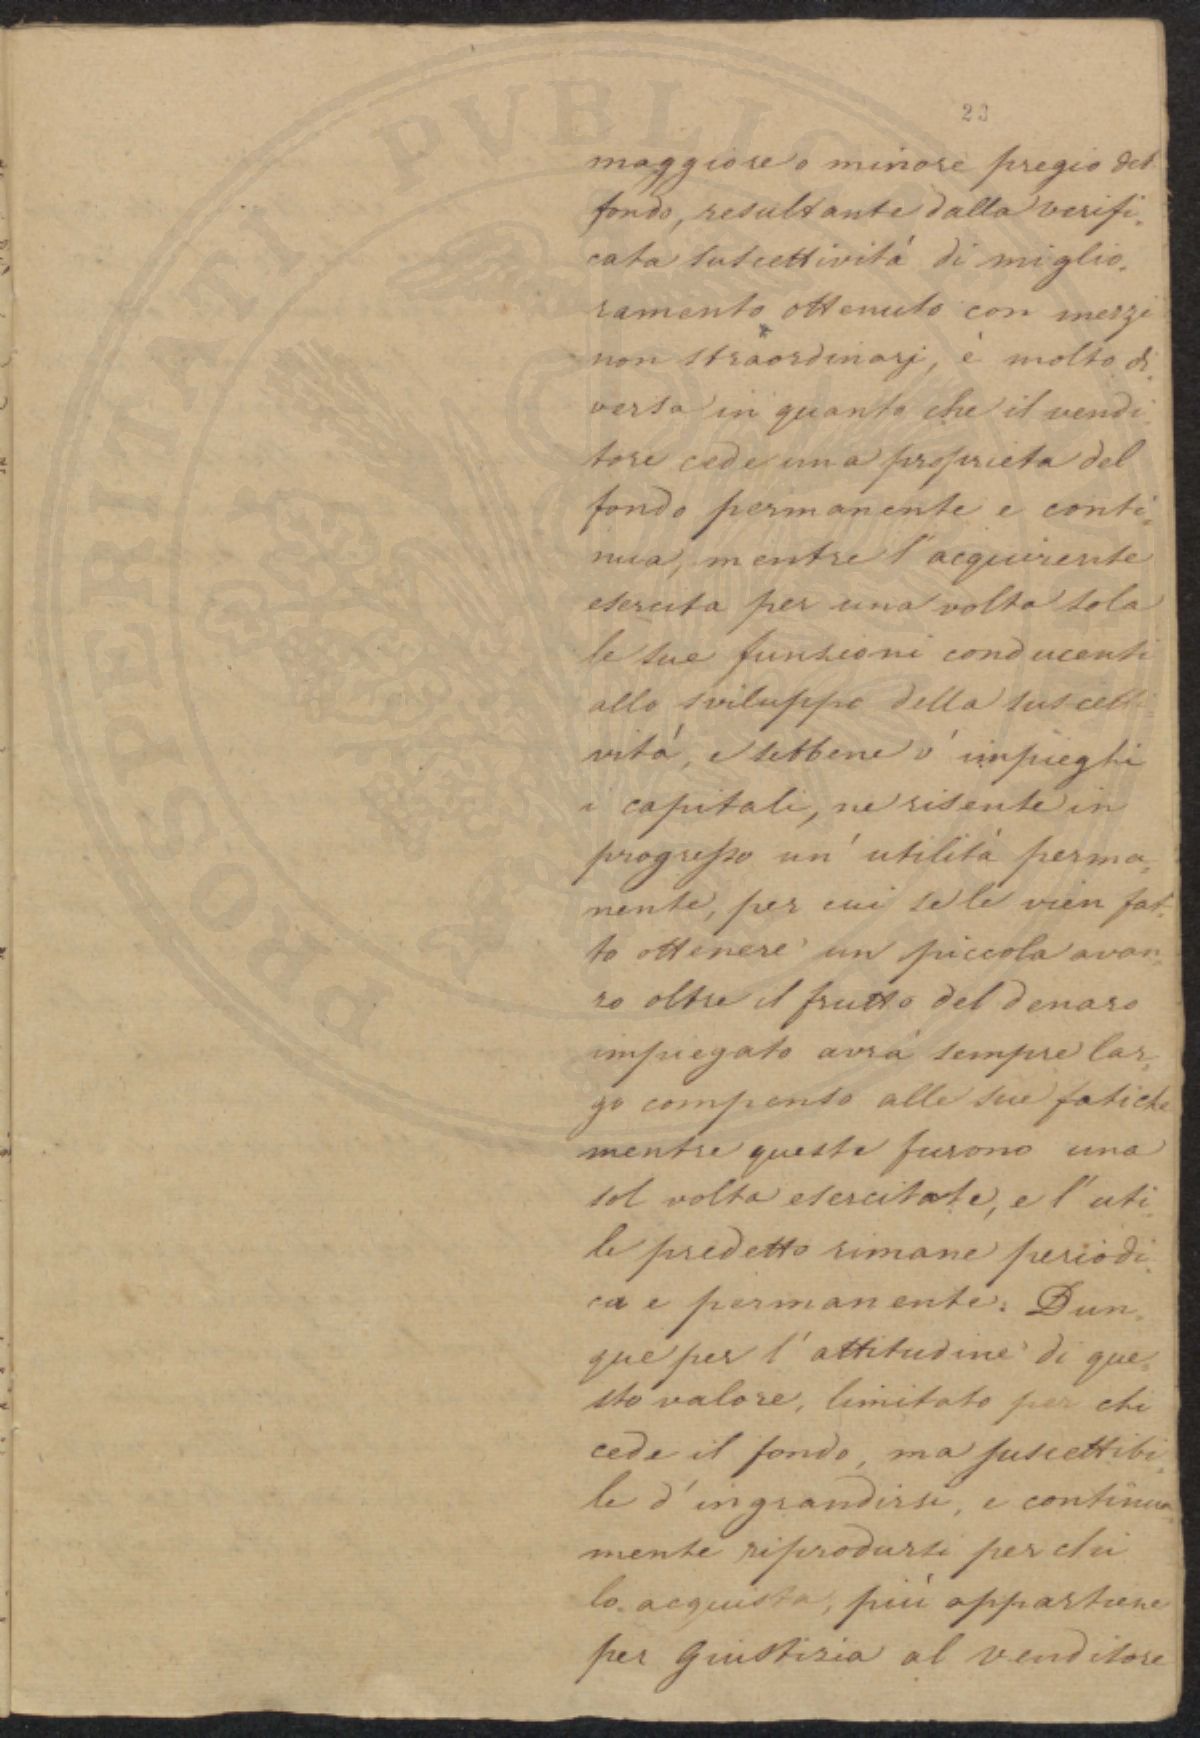 23
maggiore o minore pregio del
fondo, resultante dalla verifi-
cata suscettività di miglio-
ramento ottenuto con mezzi
non straordinarj, è molto di-
versa in quanto che il vendi-
tore cede una proprieta del
fondo permanente e conti-
nua, mentre l'acquirente
esercita per una volta sola
le sue funzioni conducenti
allo sviluppo della suscetti-
vità, e sebbene v'impieghi
i capitali, ne risente in
progresso un'utilità perma-
nente, per cui se le vien fat-
to ottenere un piccola avan-
zo oltre il frutto del denaro
impiegato avrà sempre lar-
go compenso alle sue fatiche
mentre queste furono una
sol volta esercitate, e l'uti-
le predetto rimane periodi-
ca e permanente. Dun-
que per l'attitudine di que-
sto valore, limitato per chi
cede il fondo, ma suscettibi-
le d'ingrandirsi, e continua-
mente riprodursi per chi
lo acquista, più appartiene
per giustizia al venditore
PROSPERITATI PVBLICAE